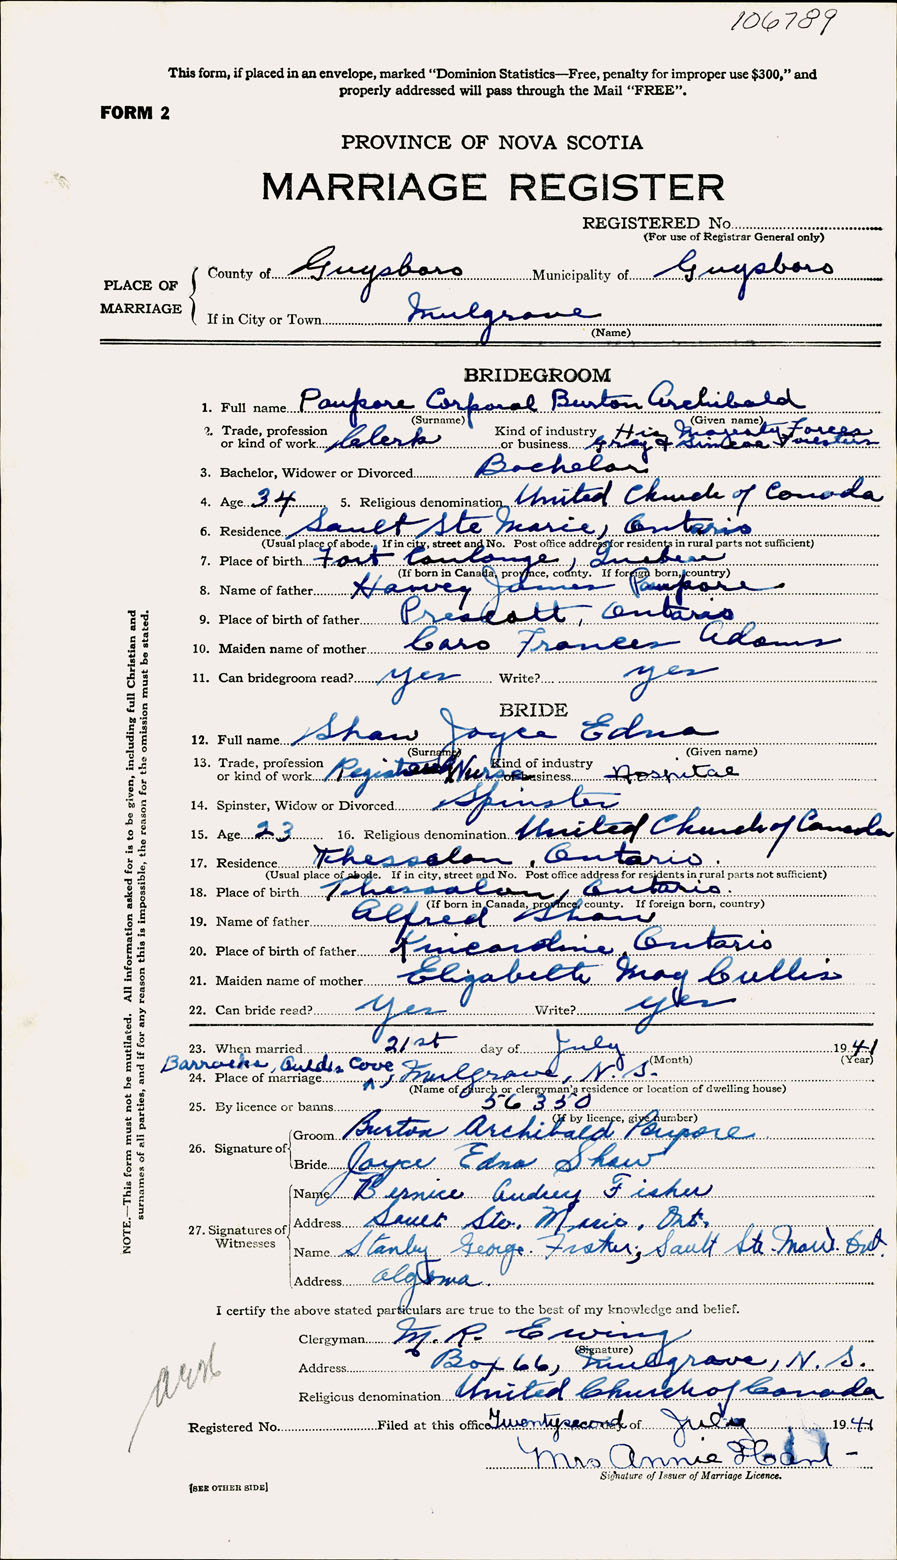 106789
This form, if placed in an envelope, marked “Dominion Statistics—Free, penalty for improper use $300,” and
properly addressed will pass through the Mail “FREE”.
FORM 2
PROVINCE OF NOVA SCOTIA
MARRIAGE REGISTER
REGISTERED No.
(For use of Registrar General only)
PLACE OF MARRIAGE
County of Guysboro Municipality of Guysboro
If in City or Town Mulgrave
(Name)
BRIDEGROOM
1. Full name Paupore Corporal Burton Archibald
(Surname) (Given name)
2. Trade, profession or kind of work Clerk Kind of industry or business His Majesty Forces Grey & Simcoe Foresters
3. Bachelor, Widower or Divorced Bachelor
4. Age 34 5. Religious denomination United Church of Canada
6. Residence Sault Ste Marie, Ontario
(Usual place of abode. If in city, street and No. Post office address for residents in rural parts not sufficient)
7. Place of birth Fort Coulonge, Quebec
(If born in Canada, province, county. If foreign born, country)
8. Name of father Harvey James Paupore
9. Place of birth of father Prescott, Ontario
10. Maiden name of mother Caro Frances Adams
11. Can bridegroom read? yes Write? yes
BRIDE
12. Full name Shaw Joyce Edna
(Surname) (Given name)
13. Trade, profession or kind of work Registered Nurse Kind of industry or business Hospital
14. Spinster, Widow or Divorced Spinster
15. Age 23 16. Religious denomination United Church of Canada
17. Residence Thessalon, Ontario.
(Usual place of abode. If in city, street and No. Post office address for residents in rural parts not sufficient)
18. Place of birth Thessalon, Ontario.
(If born in Canada, province, county. If foreign born, country)
19. Name of father Alfred Shaw
20. Place of birth of father Kincardine, Ontario
21. Maiden name of mother Elizabeth May Cullis
22. Can bride read? Yes Write? yes
23. When married 21st day of July 1941
(Month) (Year)
Barracks, Auld's Cove
24. Place of marriage ^, Mulgrave, N.S.
(Name of church or clergyman's residence or location of dwelling house)
25. By licence or banns 56350
(If by licence, give number)
26. Signature of
Groom Burton Archibald Paupore
Bride Joyce Edna Shaw
27. Signatures of Witnesses
Name Bernice Audrey Fisher
Address Sault Ste. Marie, Ont.
Name Stanley George Fisher, Sault Ste. Marie Ont.
Address Algoma.
I certify the above stated particulars are true to the best of my knowledge and belief.
Clergyman M. R. Ewing
(Signature)
Address Box 66, Mulgrave, N.S.
Religious denomination United Church of Canada
Registered No. Filed at this office Twenty second of July 1941
Mrs Annie
Signature of Issuer of Marriage Licence.
[SEE OTHER SIDE]
NOTE.—This form must not be mutilated. All information asked for is to be given, including full Christian and
surnames of all parties, and if for any reason this is impossible, the reason for the omission must be stated.